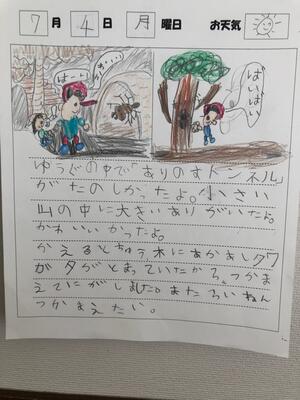 7月4日月曜日 お天気
はーい
かわいい
ばいばい
ゆうぐの中で「ありのすトンネル」
がたのしかったよ。小さい
山の中に大きいありがいたよ。
かわいいかったよ。
かえるとちゅう木にあかあしクワ
ガタがとまっていたから、つかま
えてにがしました。またらいねん
つかまえたい。